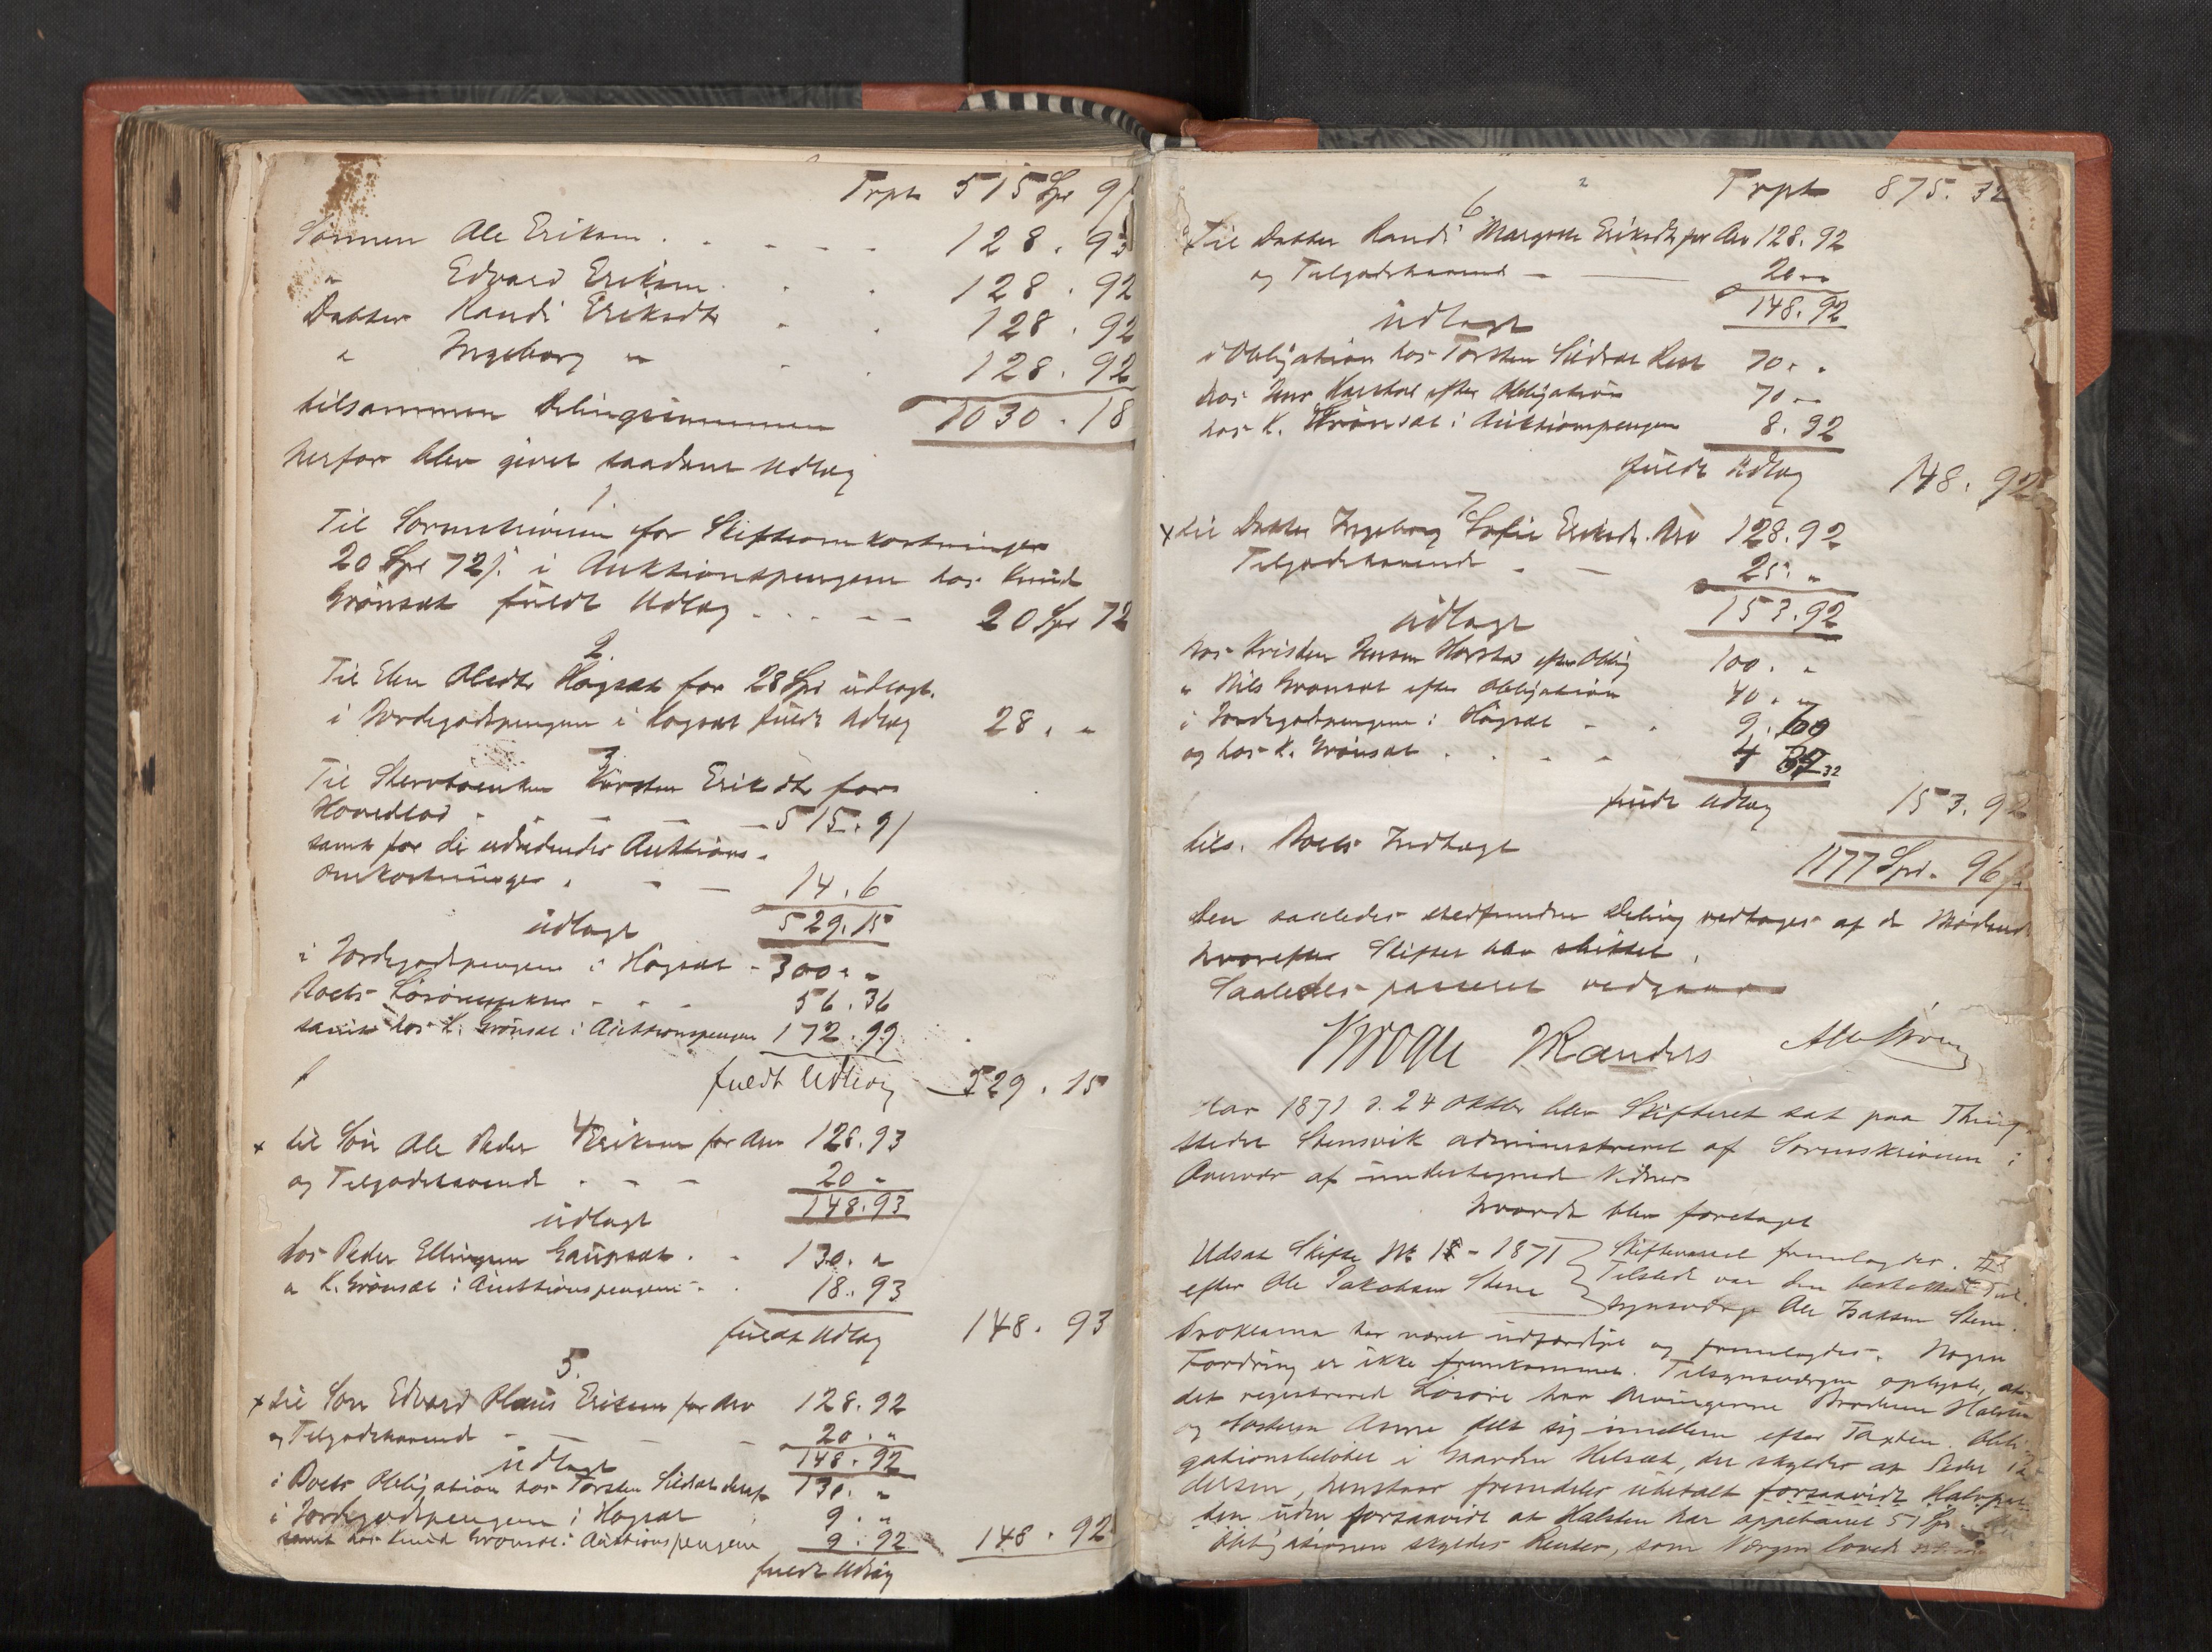 Trpt 515 Spd 91
Sønnen Ole Eriksen . . . . 128 . 93
" Edvard Eriksen . . 128 . 92
Datter Randi Eriksdtr . . 128 . 92
" Ingeborg " . . 128 . 92
tilsammen Delingssummen 1030 . 18
herfor blev givet saadant Udlæg
1.
Til Sorenskriveren for Skifteomkostninger
20 Spd 72 s. i Auktionspengene hos Knud
Grönsæt fuldt Udlæg . . . . 20 Spd 72
2.
Til Elen Olsdtr Høgsæt for 28 Spd udlagt
i Jordegodspengene i Høgsæt fuldt Udlæg 28 . "
3.
Til Stervboenken Kirsten Eriksdtr for
Hovedlod - - - - 515 . 91
samt for de udredende Auktions-
omkostninger . - - 14 . 6
udlagt 529 . 15
i Jordegodspengene i Høgsæt - 300 . "
Boets Løsøreeffekter - - - 56 . 36
samt hos K. Grönsæt i Auktionspengene 172 . 99
fuldt Udlæg 529 . 15
4.
x til Søn Ole Peder Eriksen for Arv 128 . 93
og Tilgodehavende . - - 20 "
148 . 93
udlagt
hos Peder Ellingsen Gaupsæt . . 130 . "
" K. Grönsæt i Auktionspengene - . 18 . 93
fuldt Udlæg 148 . 93
5.
x til Søn Edvard Olaus Eriksen for Arv 128 . 92
og Tilgodehavende - - - 20 . "
udlagt 148 . 92
i Boets Obligation hos Torsten Sildset 130 . "
i Jordegodspengene i Høgsæt 9 . "
samt hos Knud Grönsæt i Auktionspengene 9 . 92 148 . 92
fuldt Udlæg
Trpt 875 . 32
6
Til Datter Randi Margrete Eriksdtr for Arv 128 . 92
og Tilgodehavende - 20 "
148 . 92
udlagt
i Obligation hos Torsten Sildset Rest 70 . "
hos efter Obligation 70 "
hos K. Grönsæt i Auktionspengene 8 . 92
fuldt Udlæg 148 . 92
7.
x til Datter Ingeborg Sofie Eriksdtr. Arv 128 . 92
Tilgodehavende - - 25 . "
153 . 92
udlagt
hos Kristen Jensen Harstad efter Oblig 100 . "
" Nils Grønsæt efter Obligation 40 . "
i Jordegodspengene i Høgsæt - . 9 . 60
og hos K. Grönsæt . . . - 4 32
fuldt Udlæg 153 . 92
tils. Boets Indtægt 1177 Spd. 96 s.
Den saaledes stedfundne Deling vedtages af de Mødende
hvorefter Skiftet blev sluttet.
Saaledes passeret vedgaaes
Krogh K Randers
Aar 1871 d. 24 Oktbr blev Skifteret sat paa Thing-
stedet Stensvik administreret af Sorenskriveren i
Overvær af undertegnede Vidner
hvorda blev foretaget
Udsat Skifte No 18 - 1871 Skifteværnet fremlagdes.
efter Ole Jakobsen Stene Tilstede var den beskikkede Til-
synsværge Ole Isaksen Stene.
Proklama har været udfærdiget og fremlagdes. Nogen
Fordring er ikke fremkommet. Tilsynsværgen oplyste, at
det registrerede Løsøre har Arvingerne Broderen Halsten
og Søsteren Anne delt sig imellem efter Taxten. Obli-
gationsbeløbet i Gaarden Helsæt, der skyldes af Peder
henstaar fremdeles ubetalt forsaavidt
uden forsaavidt at Halsten har oppebaaret 51 Spd.
Obligationen skyldes Renter, som Værgen lovede